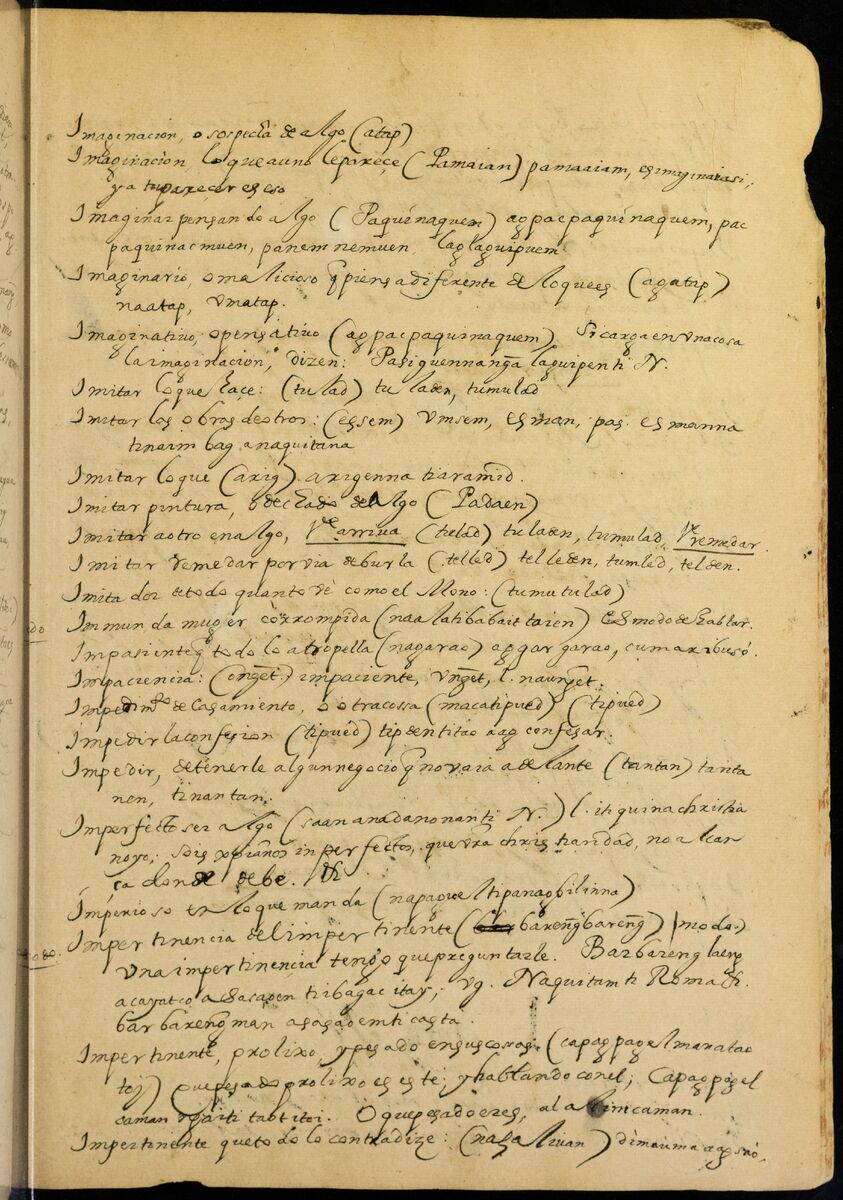 Imaginacion, o sospecha de algo (atap)
Imaginacion, lo que a uno le pareçe (Pamaian) pamaaiam, es imaginarasi,
ya tu pareçer es eso
Imaginar pensando algo (Paquinaquem) agpacpaquinaquem, pac
paquinacmuen, panemnemuen, laglaguipuem
Imaginario, o malicioso q̃ piensa diferente de lo que es (agatap)
naatap, vmatap.
Imaginativo, o pensativo (agpacpaquinaquem) Si carga en vna cosa
la imaginacion, dizen: Pasiguennanḡa laguipen ti N.
Imitar lo que haçe: (tulad) tuladen, tumulad
Imitar las obras de otros: (essem) vmsem, esman, pas. esmanna
tinaimbag a naquitana
Imitar lo que (arig) arigenna tiaramid.
Imitar pintura, o dechado de algo (Padaen)
Imitar a otro en algo, Ve arriva (tulad) tuladen, tumulad, Ve remedar.
Imitar remedar por via de burla (telled) telleden, tumled, telden.
Imitador de todo quanto vè como el Mono: (tumutulad)
Inmunda muger corrompida (naalatibabaittaien) Es modo de hablar.
Impasiente q̃ todo lo atropella (nagarao) aggargarao, cumaribusó.
Impaciencia: (onḡet) impaciente, vnḡet, l. naunḡet.
Impedimto de casamiento, o otra cossa (macatipued) (tipued)
Impedir la confesion (tipued) tipdentitao ag confesar.
Impedir, detenerle algun negocio q̃ no vaia adelante (tantan) tanta
nen, tinantan.
Imperfecto ser algo (saan anadanonan ti N.) l. iti quinachristia
noyo; sois xp̃ianos imperfectos, que vr̃a christiandad, no alcan
ça donde debe. &
Imperioso en lo que manda (napaguel tipanagbilinna)
Impertinencia del impertinente (barenḡbarenḡ) (modo.)
vna impertinencia tengo que preguntarle. Barbareng laeng
acayatco a sasaoen tibagac itay; vg. Naquitam ti Roma &.
barbarenḡ man a sasaoem ti casta.
Impertinente, prolixo, y pesado en sus cosas. (capagpagel maratao
toy) que pesado prolixo es este; y hablando con el; Capagpagel
caman vgaiti taotitoi. O que pesado eres, al caman.
Impertinente que todo lo contradize: (nasalivan)